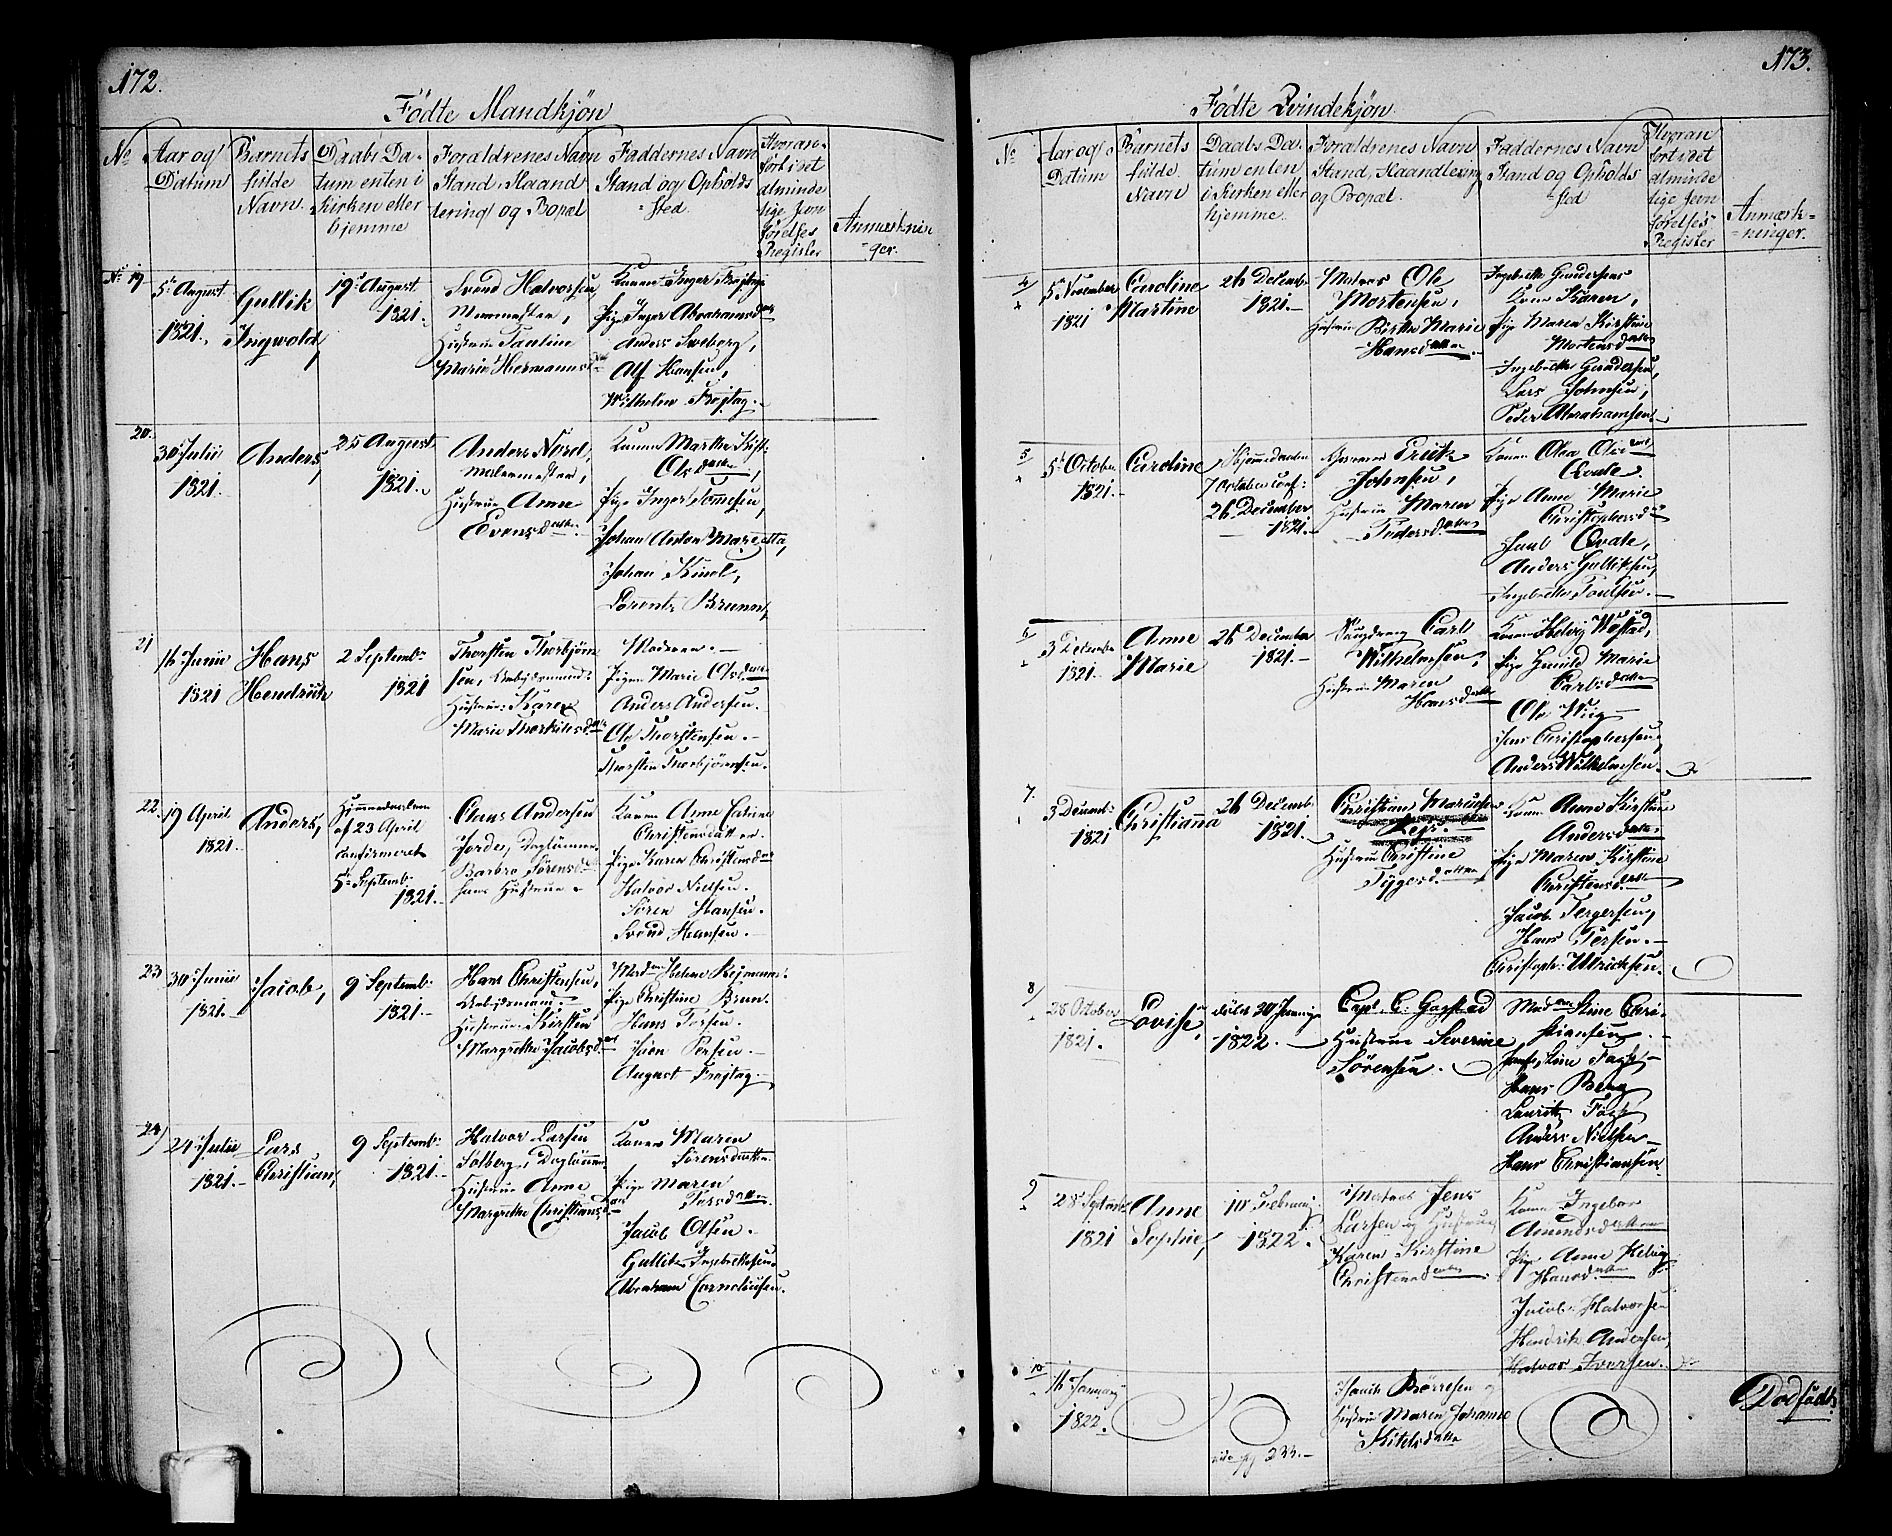 172.
Födte Mandkjön
No
Aar og
Datum
Barnets
fulde
Navn.
Daabs Da-
tum enten i
Kirken eller
hjemme
Foraldrenes Navn
Stand, Haand
tering og Bopæl
Faddernes Navn
Stand og Opholds
sted.
Hvoran-
fört i det
alminde
lige Jevn
förelses
Register
Anmærknin
ger.
No 19
5te August
1821.
Gullik
Ingwold,
19de August
1821.
Svend Halvorsen
Muurmester,
Hustrue Pauline
Marie Hermansd.
Konen Inger Frøjtag
Pige Inger Abrahamsdatter
Anders Sneberg,
Alf Hansen,
Wilhelm Frøjtag.
20.
30 Julii
1821.
Anders,
25 August
1821.
Anders Nord,
Malermester,
Hustrue Anne
Evensdatter.
Konen Marthe
Olsdatter,
Pige Inger Tomesen,
Johan Anton Marietta,
Johan
Lorentz Brunn,
21
16 Junii
1821
Hans
Hendrich
2 Septembr
1821
Thorsten Thorbjørn
sen, Arbejdsmand
Hustrue: Karen
Marie Thorkildsd.
Moderen.
Pigen Marie Olsdatter
Anders Andersen.
Ole Thorstensen.
Thorsten Thorbjørnsen.
22.
19 April
1821.
Anders,
Hjemmedøbt
af 23 April
confirmeret
5te Septemb:
1821.
Claus Andersen
Jordes, Daglönner
Barbro Sørensd
hans Hustrue
Konen Anne Catrine
Christensdatter.
Pige Karen Christensd
Halvor Nielsen.
Søren Hansen.
Svend Hansen.
23
30 Junii
1821.
Jacob,
9 Septemb:
1821.
Hans Christensen,
Arbejdsmand.
Hustrue: Kirsten
Margrethe Jacobsd
Mad Helene
Pige Christine Brun.
Hans Torsen.
Jsen Persen.
August Frøjtag.
24)
24 Julii
1821.
Lars
Christian,
9 Septemb:
1821.
Halvor Larsen
Solberg, Daglönner
Hustrue Anne
Margrethe Christiansd
Konen Maren
Sörensdatter.
Pige Maren
Larsdatter
Jacob Olsen.
Gullik Ingebrethsen
Abraham Corneliusen.
173.
Födte Qvindekjön
No
Aar og
Datum
Barnets
fulde
Navn
Daabs Da-
tum enten
i Kirken eller
hjemme.
Foraldrenes Navn
Stand, Haandtering
og Bopæl.
Faddernes Navn
Stand og Opholds
sted
Hvoran
fört i det
alminde
lige Jevn
förelses
Register
Anmærk-
ninger.
4
5te November
1821
Caroline
Martine
26 Decemb:
1821.
Matros Ole
Mortensen,
Hustrue Birthe Marie
Hansdatter.
Ingebreth Gundersens
Kone Karen,
Pige Maren Kirstine
Mortensdatter
Ingebreth Gundersen,
Lars Johnsen,
Peder Abrahamsen.
5
5te October
1821.
Caroline
Hjemmedøbt
7 October conf:
26 December
1821.
Erick
Johnsen,
Hustrue Maren
Pedersdatter
Konen Olea
Qvale.
Pige Anne Marie
Christophersd
Qvale,
Anders Gulliksen,
Ingebreth Poulsen.
6
3 Decembr
1821.
Anne
Marie
26 December
1821.
Carl
Wilhelmsen,
Hustrue Maren
Hansdatter
Konen Helvig Westad,
Pige Gunild Marie
Carlsdatter
Ole Wiig
Jens Christophersen,
Anders Wilhelmsen.
7.
3 Decemb:
1821
Christianna
26 Decemb
1821.
Christian
Hustrue Christine
Tygersdatter
Konen Anne Kirstine
Andersdatter
Pige Maren Kirstine
Christensdatter
Jacob Tergersen,
Hans Persen.
Christoph: Ulrichsen.
8)
28 October
1821.
Lovise,
døbt 20 January
1822.
Capt. C. Garstad
Hustrue Severine
Sørensen.
Mad Stine Chri-
stiansen,
Stine Fagh
Hans Berg
Lauritz Fagh
Anders Nielsen
Hans Christiansen.
9
28 Septembr
1821
Anne
Sophie,
10 February:
1822.
Matros Jens
Larsen og Hustrue
Karen Kirstine
Christensdatter
Konen Ingebor
Amundsdatter
Pige Anne Helvig
Hansdatter
Jacob Halvorsen
Hendrik Andersen,
Halvor Iversen.
10
16 January
1822.
vide pag 233.
Jacob Børresen
Hustrue Maren Johanne
Kittelsdatter
Dødfødt